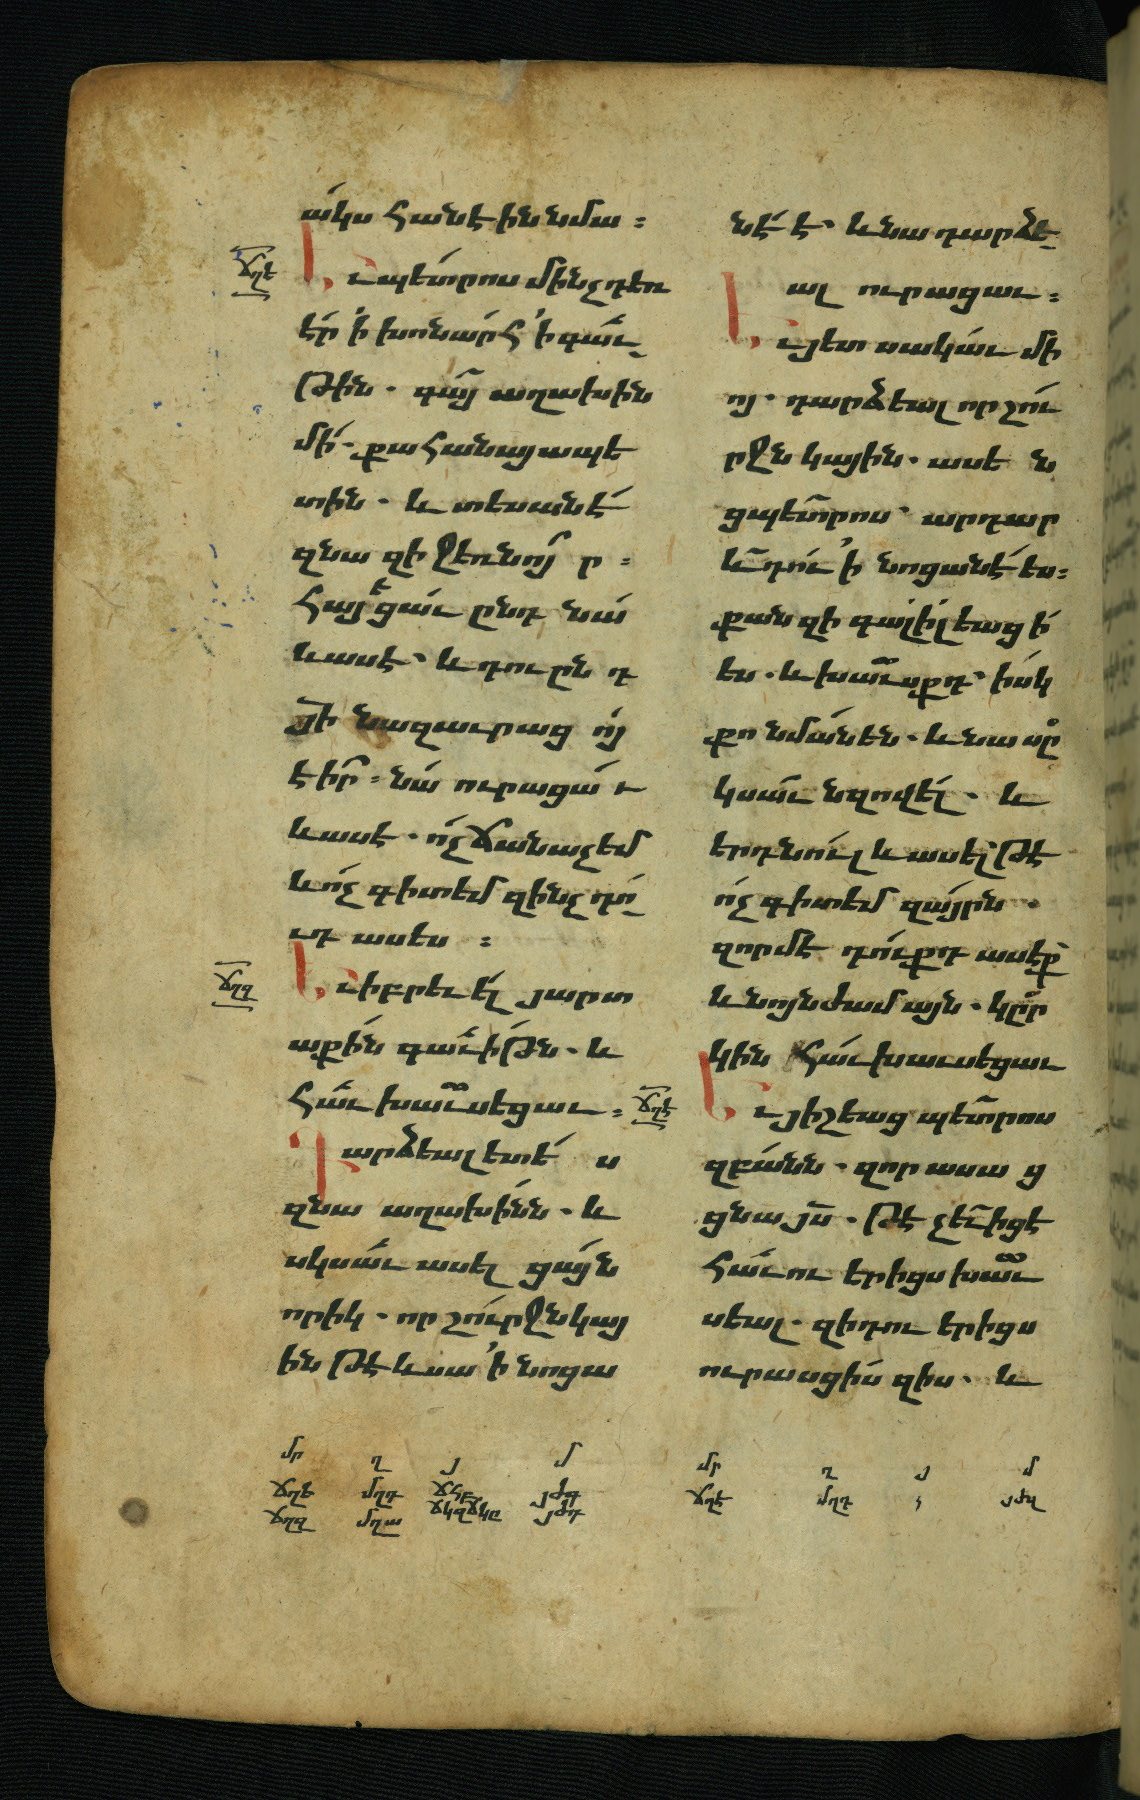 ակս հանէին նմա ։
ճղե
Եւ պետրոս մինչդեռ
էր ՛ի խոնարհ ՛ի գաւ
թին . գայ աղախին
մի . քահանայապե
տին . և տեսանէ
զնա զի ջեռնոյր ։
հայեցաւ ընդ նա
և ասէ ՝ և դու ընդ
յի նազաւրացւոյ
էիր ։ նա ուրացաւ
և ասէ . ոչ ճանաչեմ
և ոչ գիտեմ զինչ դո
ւդ ասես ։
ճղզ
Եւ իբրեւ ել յարտ
աքին գաւիթն . և
հաւ խաւսեցաւ ։
Դարձեալ ետես
զնա աղախինն . և
սկսաւ ասել ցայն
որիկ . որ շուրջն կայ
ին թէ և սա ՛ի նոցա
նէ է ՝ և նա դարձե
ալ ուրացաւ ։
Եւ յետ սակաւ մի
ոյ . դարձեալ որ շու
րջն կային . ասեն
ցպետրոս ՝ արդար
և դու ՛ի նոցանէ ես ։
քանզի գալիլեացի
ես . և խաւսքդ ՝ իսկ
քո նմանեն . և նա սը
կսաւ նզովել . և
երդնուլ և ասել թէ
ոչ գիտեմ զայրն .
զորմէ դուքդ ասէք
և նոյնժամայն . կըր
կին հաւ խաւսեցաւ
ճղէ
Եւ յիշեաց պետրոս
զբանն . զոր ասաց
ցնա յս . թէ չեւ իցէ
հաւու երիցս խաւ
սեալ . զի դու երիցս
ուրասցիս զիս . և
մր ղ յ մ
ճղե մղդ ճհբ յժգ
ճղզ մղա ճկզ ճկը յժդ
մր ղ յ մ
ճղէ մղդ